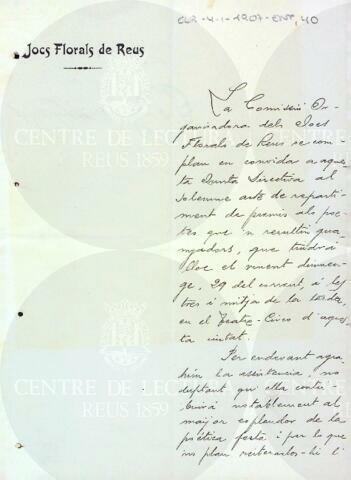 CLR-4-1-1907-ENT, 40
Jocs Florals de Reus
La Comissió Or-
ganisadora dels Jocs
Florals de Reus se com-
plau en convidar a aques-
ta Junta Directiva al
solemne acte de reparti-
ment de premis als poe-
tes que 'n resultin gua-
nyadors, que tindrà
lloc el vinent diumen-
ge, 29 del currut, á les
tres i mitja de la tarda,
en el Teatre-Circo d'aques-
ta ciutat.
Per endevant agra-
him la assistencia, no
duptant que ella contri-
buirá notablement al
major esplendor de la
poética festa i per lo que
nos plau reiterarlos-hi l'
CENTRE DE LECTURA
REUS 1859
CENTRE DE LECTURA
REUS 1859